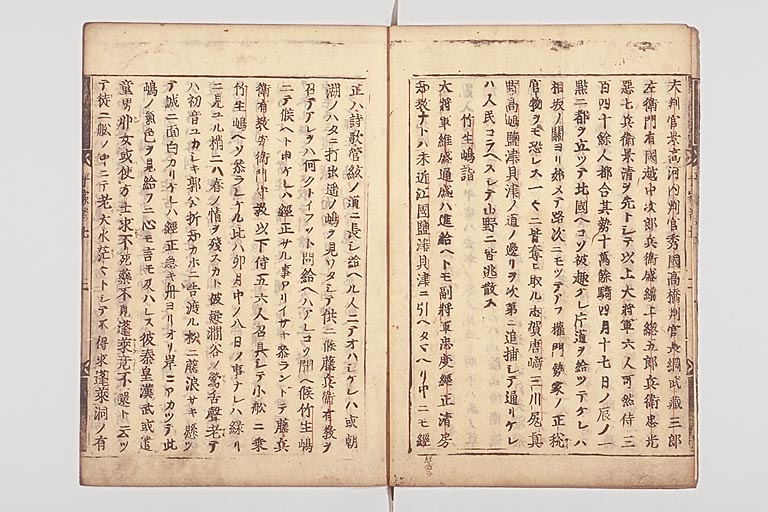 大判官景高河内判官秀國高橋判官長綱武蔵三郎
左衛門有國越中次郎兵衛盛繼上総五郎兵衛忠光
惡七兵衛景清ヲ先トシテ以上大将軍六人可然侍三
百四十餘人都合其勢十萬餘騎四月十七日ノ辰ノ一
點ニ都ヲ立ツテ北國ヘコソ被趣ケレ片道ヲ給ツテケレハ
相坂ノ關ヨリ始メテ路次ニモツテアフ權門勢家ノ正税
官物ヲモ恐レス一々ニ皆奪ヒ取ル志賀唐崎三川尻真
野高嶋鹽津貝津ノ道ノ邊リヲ次第ニ追捕シテ通リケレ
ハ人民コラヘスシテ山野ニ皆逃散ス
竹生嶋詣
大将軍維盛通盛ハ進給ヘトモ副将軍忠度經正清房
知教ナトハ未近江國鹽津貝津ニ引ヘタマヘリ中ニモ經
正ハ詩歌管絃ノ道ニ長シ給ヘル人ニテオハシケレハ或朝
湖ノハタニ打出遥ノ嶋ヲ見ワタシテ供ニ候藤兵衛有教ヲ
召テアレヲハ何クトイフソト問給ヘハアレコソ聞ヘ候竹生嶋
ニテ候ヘト申ケレハ經正サル事アリイサヤ参ラントテ藤兵
衛有教安衛門守教以下侍五六人召具シテ小松ニ乗
竹生嶋ヘソ参ラレケル比ハ卯月中ノ八日ノ事ナレハ緑リ
ニ見ユル梢ニハ春ノ情ヲ殘スカト被疑澗谷ノ鶯舌聲老テ
ハ初音ユカシキ郭公折知カホニ告渡ル松ニ藤浪サキ懸ツ
テ誠ニ面白カリケレハ經正急キ舟ヨリオリ岸ニアカツテ此
嶋ノ氣色ヲ見給フニ心モ言モ及ハレス彼秦皇漢武或遣
童男丱女或使方士求不死藥不見蓬萊否不還ト云ツ
テ徒ニ舩ノ中ニテ老天水茫々トシテ不得求蓬萊洞ノ有